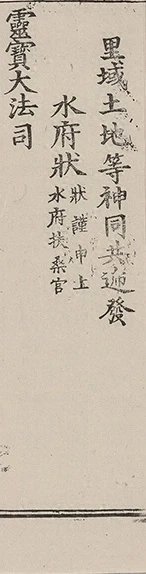 里域土地等神同共遞發
水府狀
狀謹申上
水府扶桑官
靈寶大法司